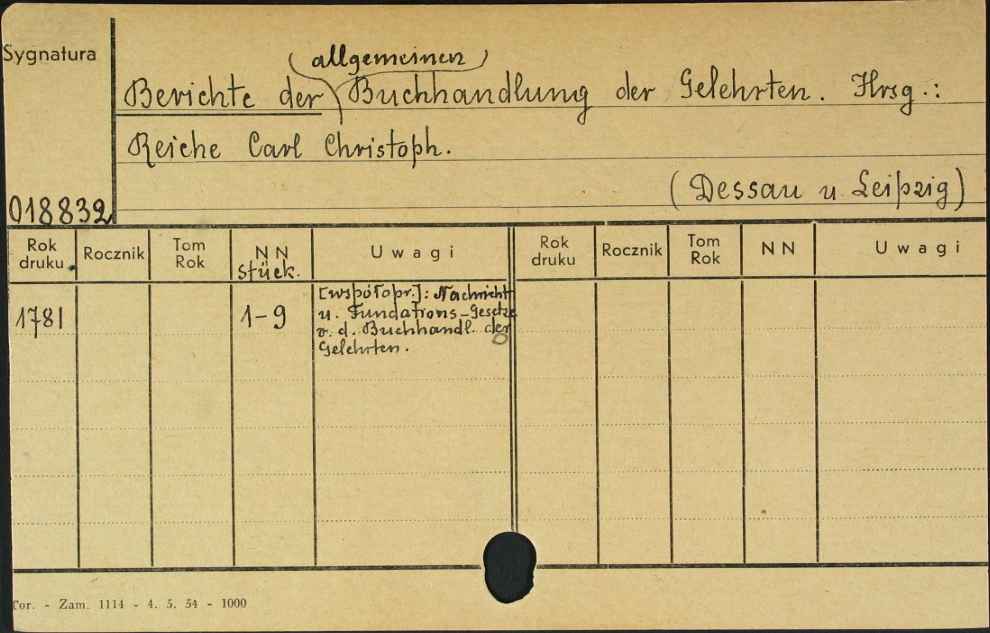 Sygnatura
allgemeinen
Berichte der Buchhandlung der Gelehrten. Hrsg.:
Reiche Carl Christoph.
(Dessau u. Leipzig)
018832
Rok druku Rocznik Tom Rok NN stück. Uwagi Rok druku Rocznik Tom Rok NN Uwagi
1781 1-9 [współopr.]: Nachricht
u. Fundations-Gesetze
v. d. Buchhandl. der
Gelehrten.
Tor. - Zam. 1114 - 4. 5. 54 - 1000